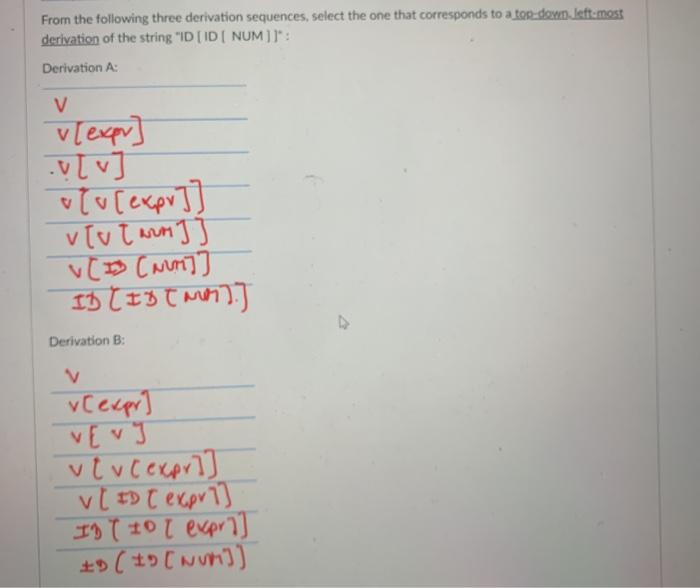 From the following three derivation sequences, select the one that corresponds to a top-down, left-most
derivation of the string "ID [ ID [ NUM ] ]" :
Derivation A:
V
V[expr]
.V[V]
V[V[expr]]
V[V[NUM]]
V[ID[NUM]]
ID[ID[NUM].]
Derivation B:
V
V[expr]
V[V]
V[V[expr]]
V[ID[expr]]
ID[ID[expr]]
ID[ID[NUM]]